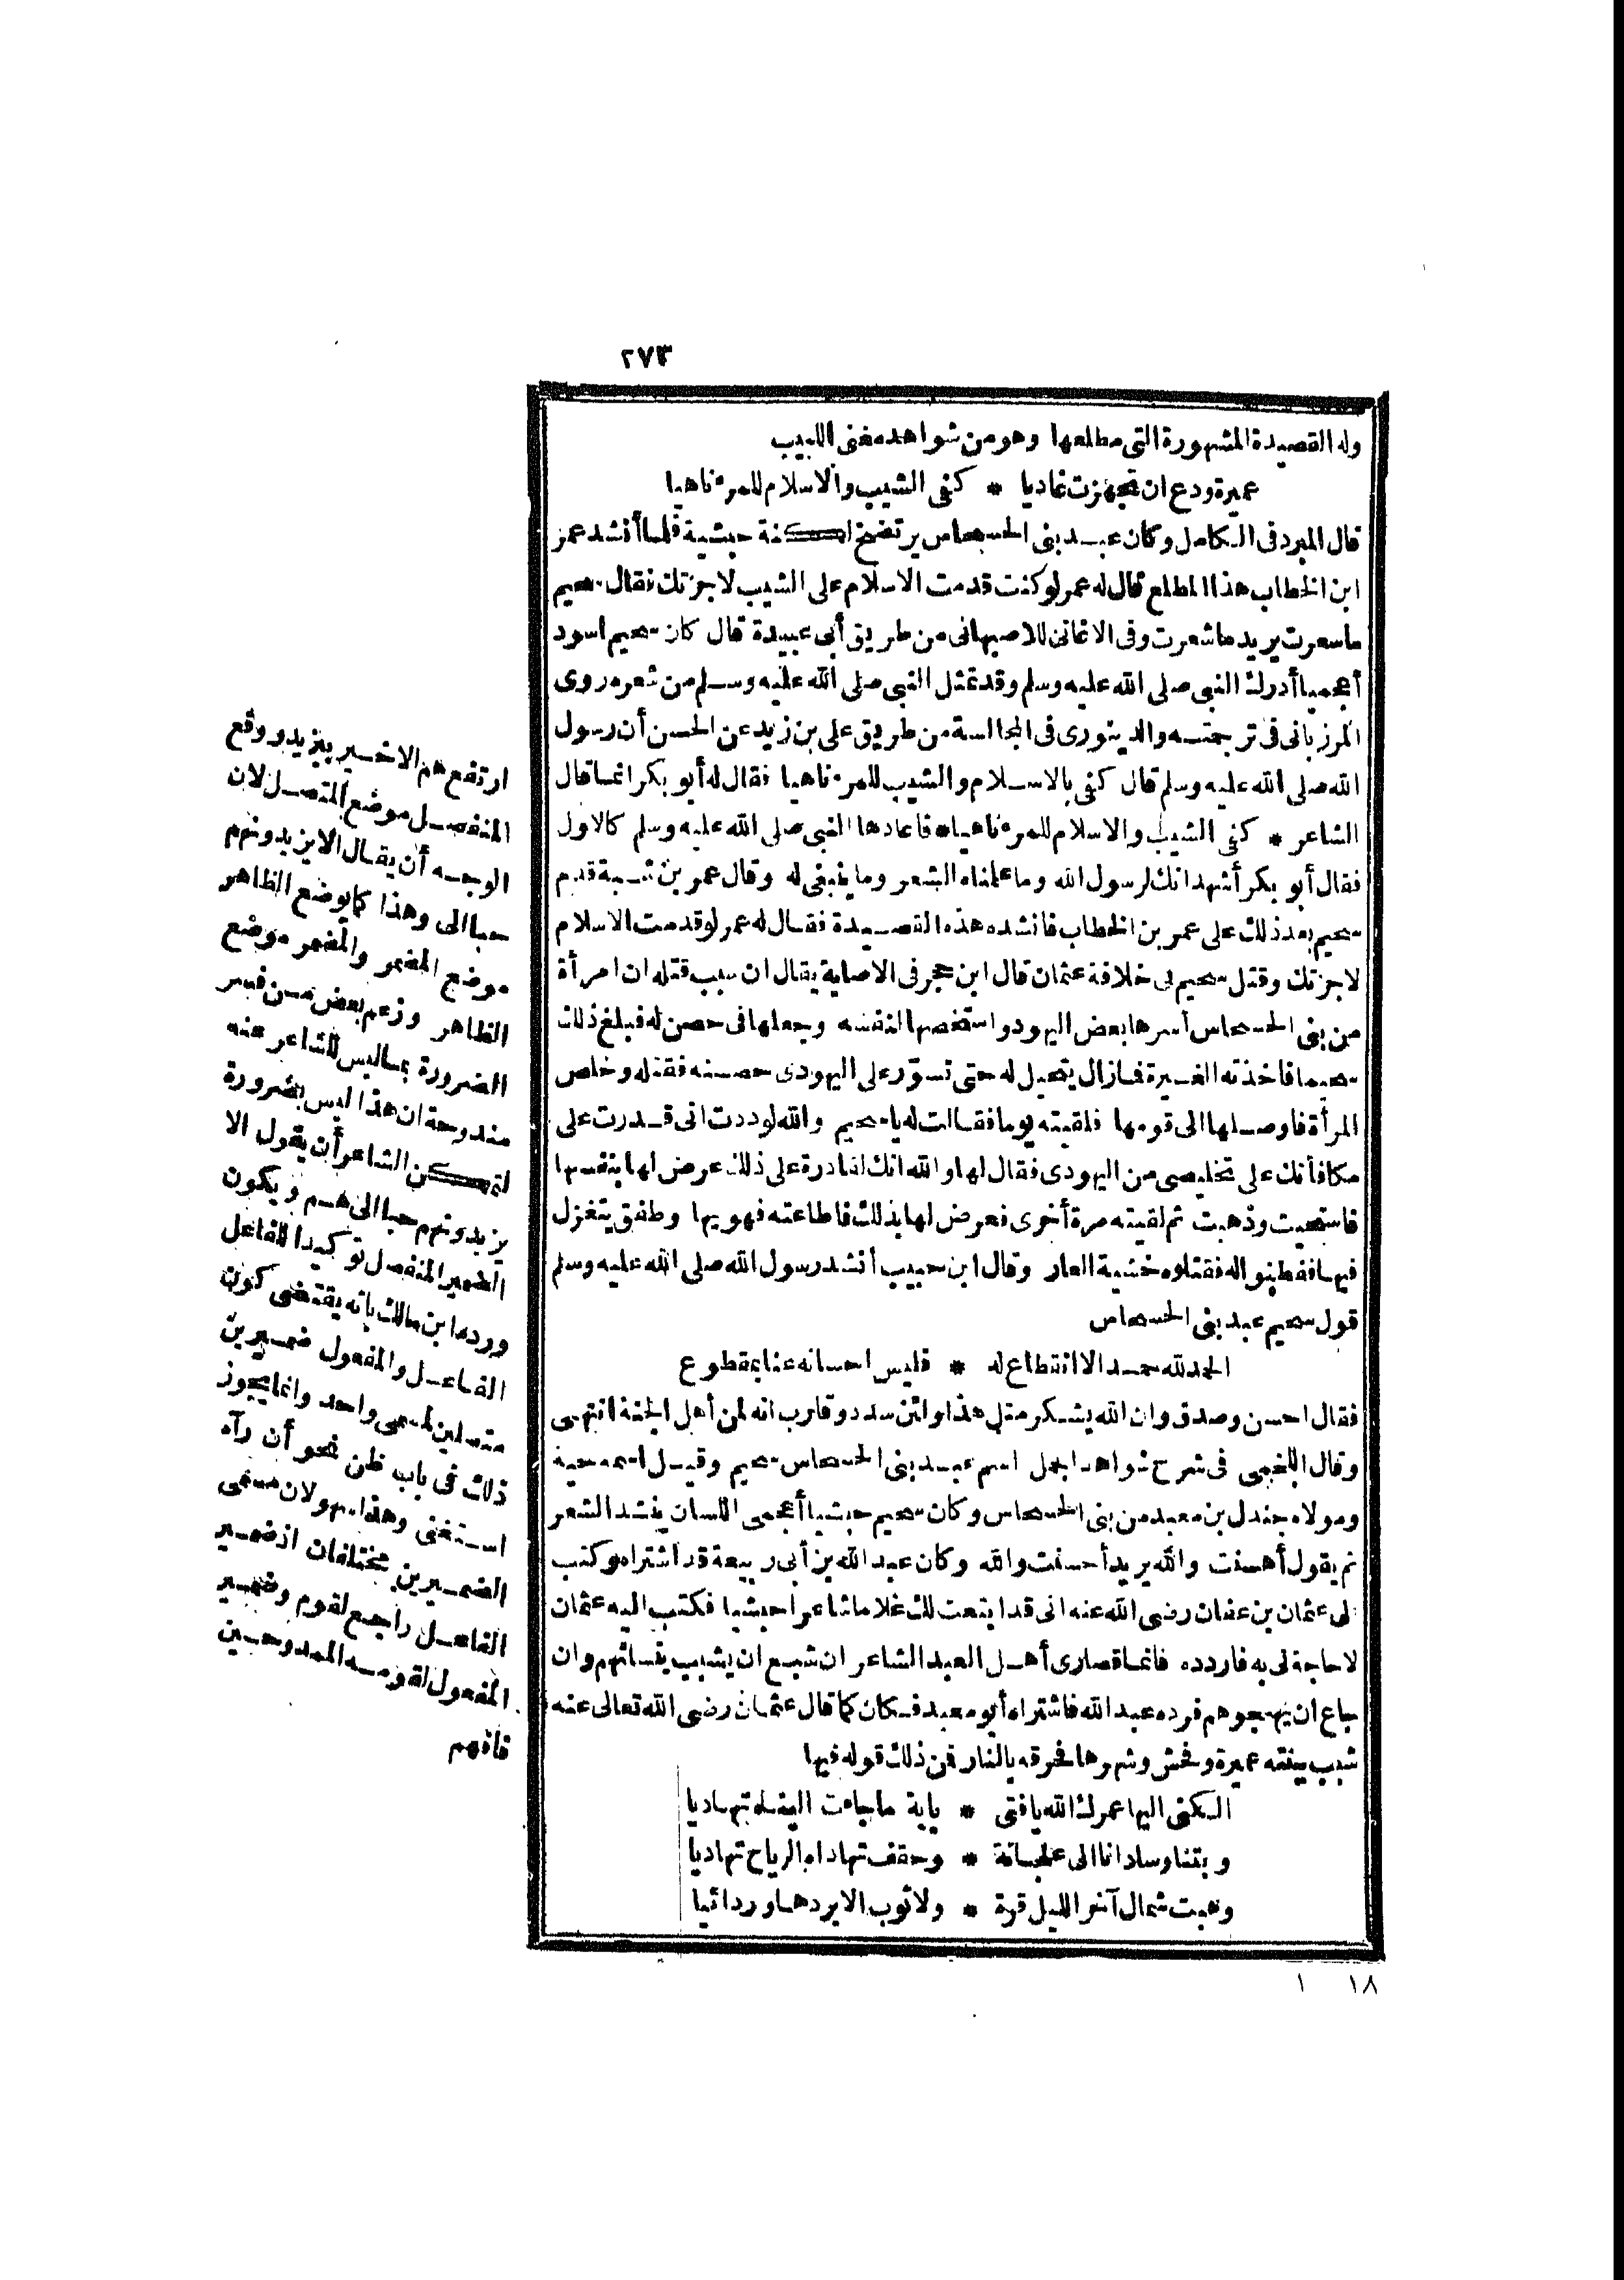 ٢٧٣
وله القصيدة المشهورة التى مطلعها وهو من شواهد مغنى اللبيب
عميرة ودع ان تجهزت غاديا * كفى الشيب والاسلام للمرء ناهيا
قال المبرد فى الكامل وكان عبد بنى الحسحاس يرتضخ لكنة حبشية فلما أنشد عمر
ابن الخطاب هذا المطلع قال له عمر لو كنت قدمت الاسلام على الشيب لاجزتك فقال سحيم
ما سعرت يريد ما شعرت وفى الاغانى للاصبهانى من طريق أبى عبيدة قال كان سحيم اسود
أعجميا أدرك النبى صلى الله عليه وسلم وقد تمثل النبى صلى الله عليه وسلم من شعره روى
المرزبانى فى ترجمته والدينورى فى المجالسة من طريق على بن زيد عن الحسن أن رسول
الله صلى الله عليه وسلم قال كفى بالاسلام والشيب للمرء ناهيا فقال له أبو بكر انما قال
الشاعر * كفى الشيب والاسلام للمرء ناهيا * فاعادها النبى صلى الله عليه وسلم كالاول
فقال أبو بكر أشهد انك لرسول الله وما علمناه الشعر وما ينبغى له وقال عمر بن شبة قدم
سحيم بعد ذلك على عمر بن الخطاب فانشده هذه القصيدة فقال له عمر لو قدمت الاسلام
لاجزتك وقتل سحيم فى خلافة عثمان قال ابن حجر فى الاصابة يقال ان سبب قتله ان امرأة
من بنى الحسحاس أسرها بعض اليهود واستخصها لنفسه وجعلها فى حصن له فبلغ ذلك
سحيما فاخذته الغيرة فما زال يتحيل له حتى تسوّر على اليهودى حصنه فقتله وخلص
المرأة فاوصلها الى قومها فلقيته يوما فقالت له يا سحيم والله لوددت انى قدرت على
مكافأتك على تخليصى من اليهودى فقال لها والله انك لقادرة على ذلك عرض لها بنفسها
فاستحيت وذهبت ثم لقيته مرة أخرى فعرض لها بذلك فاطاعته فهويها وطفق يتغزل
فيها ففطنوا له فقتلوه خشية العار وقال ابن حبيب أنشد رسول الله صلى الله عليه وسلم
قول سحيم عبد بنى الحسحاس
الحمد لله حمدا لا انقطاع له * فليس احسانه عنا بمقطوع
فقال احسن وصدق وان الله يشكر مثل هذا ولئن سدد وقارب انه لمن أهل الجنة انتهى
وقال اللخمى فى شرح شواهد الجمل اسم عبد بنى الحسحاس سحيم وقيل اسمه حية
ومولاه جندل بن معبد من بنى الحسحاس وكان سحيم حبشيا أعجمى اللسان ينشد الشعر
ثم يقول أهسنت والله يريد أحسنت والله وكان عبد الله بن أبى ربيعة قد اشتراه وكتب
لى عثمان بن عفان رضى الله عنه انى قد ابتعت لك غلاما شاعرا حبشيا فكتب اليه عثمان
لا حاجة لى به فاردده فانما قصارى أهل العبد الشاعر ان شبع ان يشبب بنسائهم وان
جاع ان يهجوهم فرده عبد الله فاشتراه أبو معبد فكان كما قال عثمان رضى الله تعالى عنه
شبب ببنته عميرة وفحش وشهرها فحرقه بالنار فمن ذلك قوله فيها
ألكنى اليها عمرك الله يا فتى * بآية ما جاءت الينا تهاديا
وبتنا وسادانا الى علجانة * وحقف تهاداه الرياح تهاديا
وهبت شمال آخر الليل قرة * ولا ثوب الا بردها وردائيا
١٨ ١
ارتفع هم الاخير بيزيد ووقع
المنفصل موضع المتصل لان
الوجه أن يقال الا يزيدونهم
حبا الى وهذا كما يوضع الظاهر
موضع المضمر والمضمر موضع
الظاهر وزعم بعض من فسر
الضرورة بما ليس للشاعر عنه
مندوحة ان هذا ليس بضرورة
لتمكن الشاعر أن يقول الا
يزيدونهم حبا الى هم ويكون
الضمير المنفصل توكيدا للفاعل
ورده ابن مالك بانه يقتضى كون
الفاعل والمفعول ضميرين
متصلين لمسمى واحد وانما يجوز
ذلك فى باب ظن نحو أن رآه
استغنى وهذا سهو لان مسمى
الضميرين مختلفان اذ ضمير
الفاعل راجع لقوم وضمير
المفعول لقومه الممدوحين
فافهم